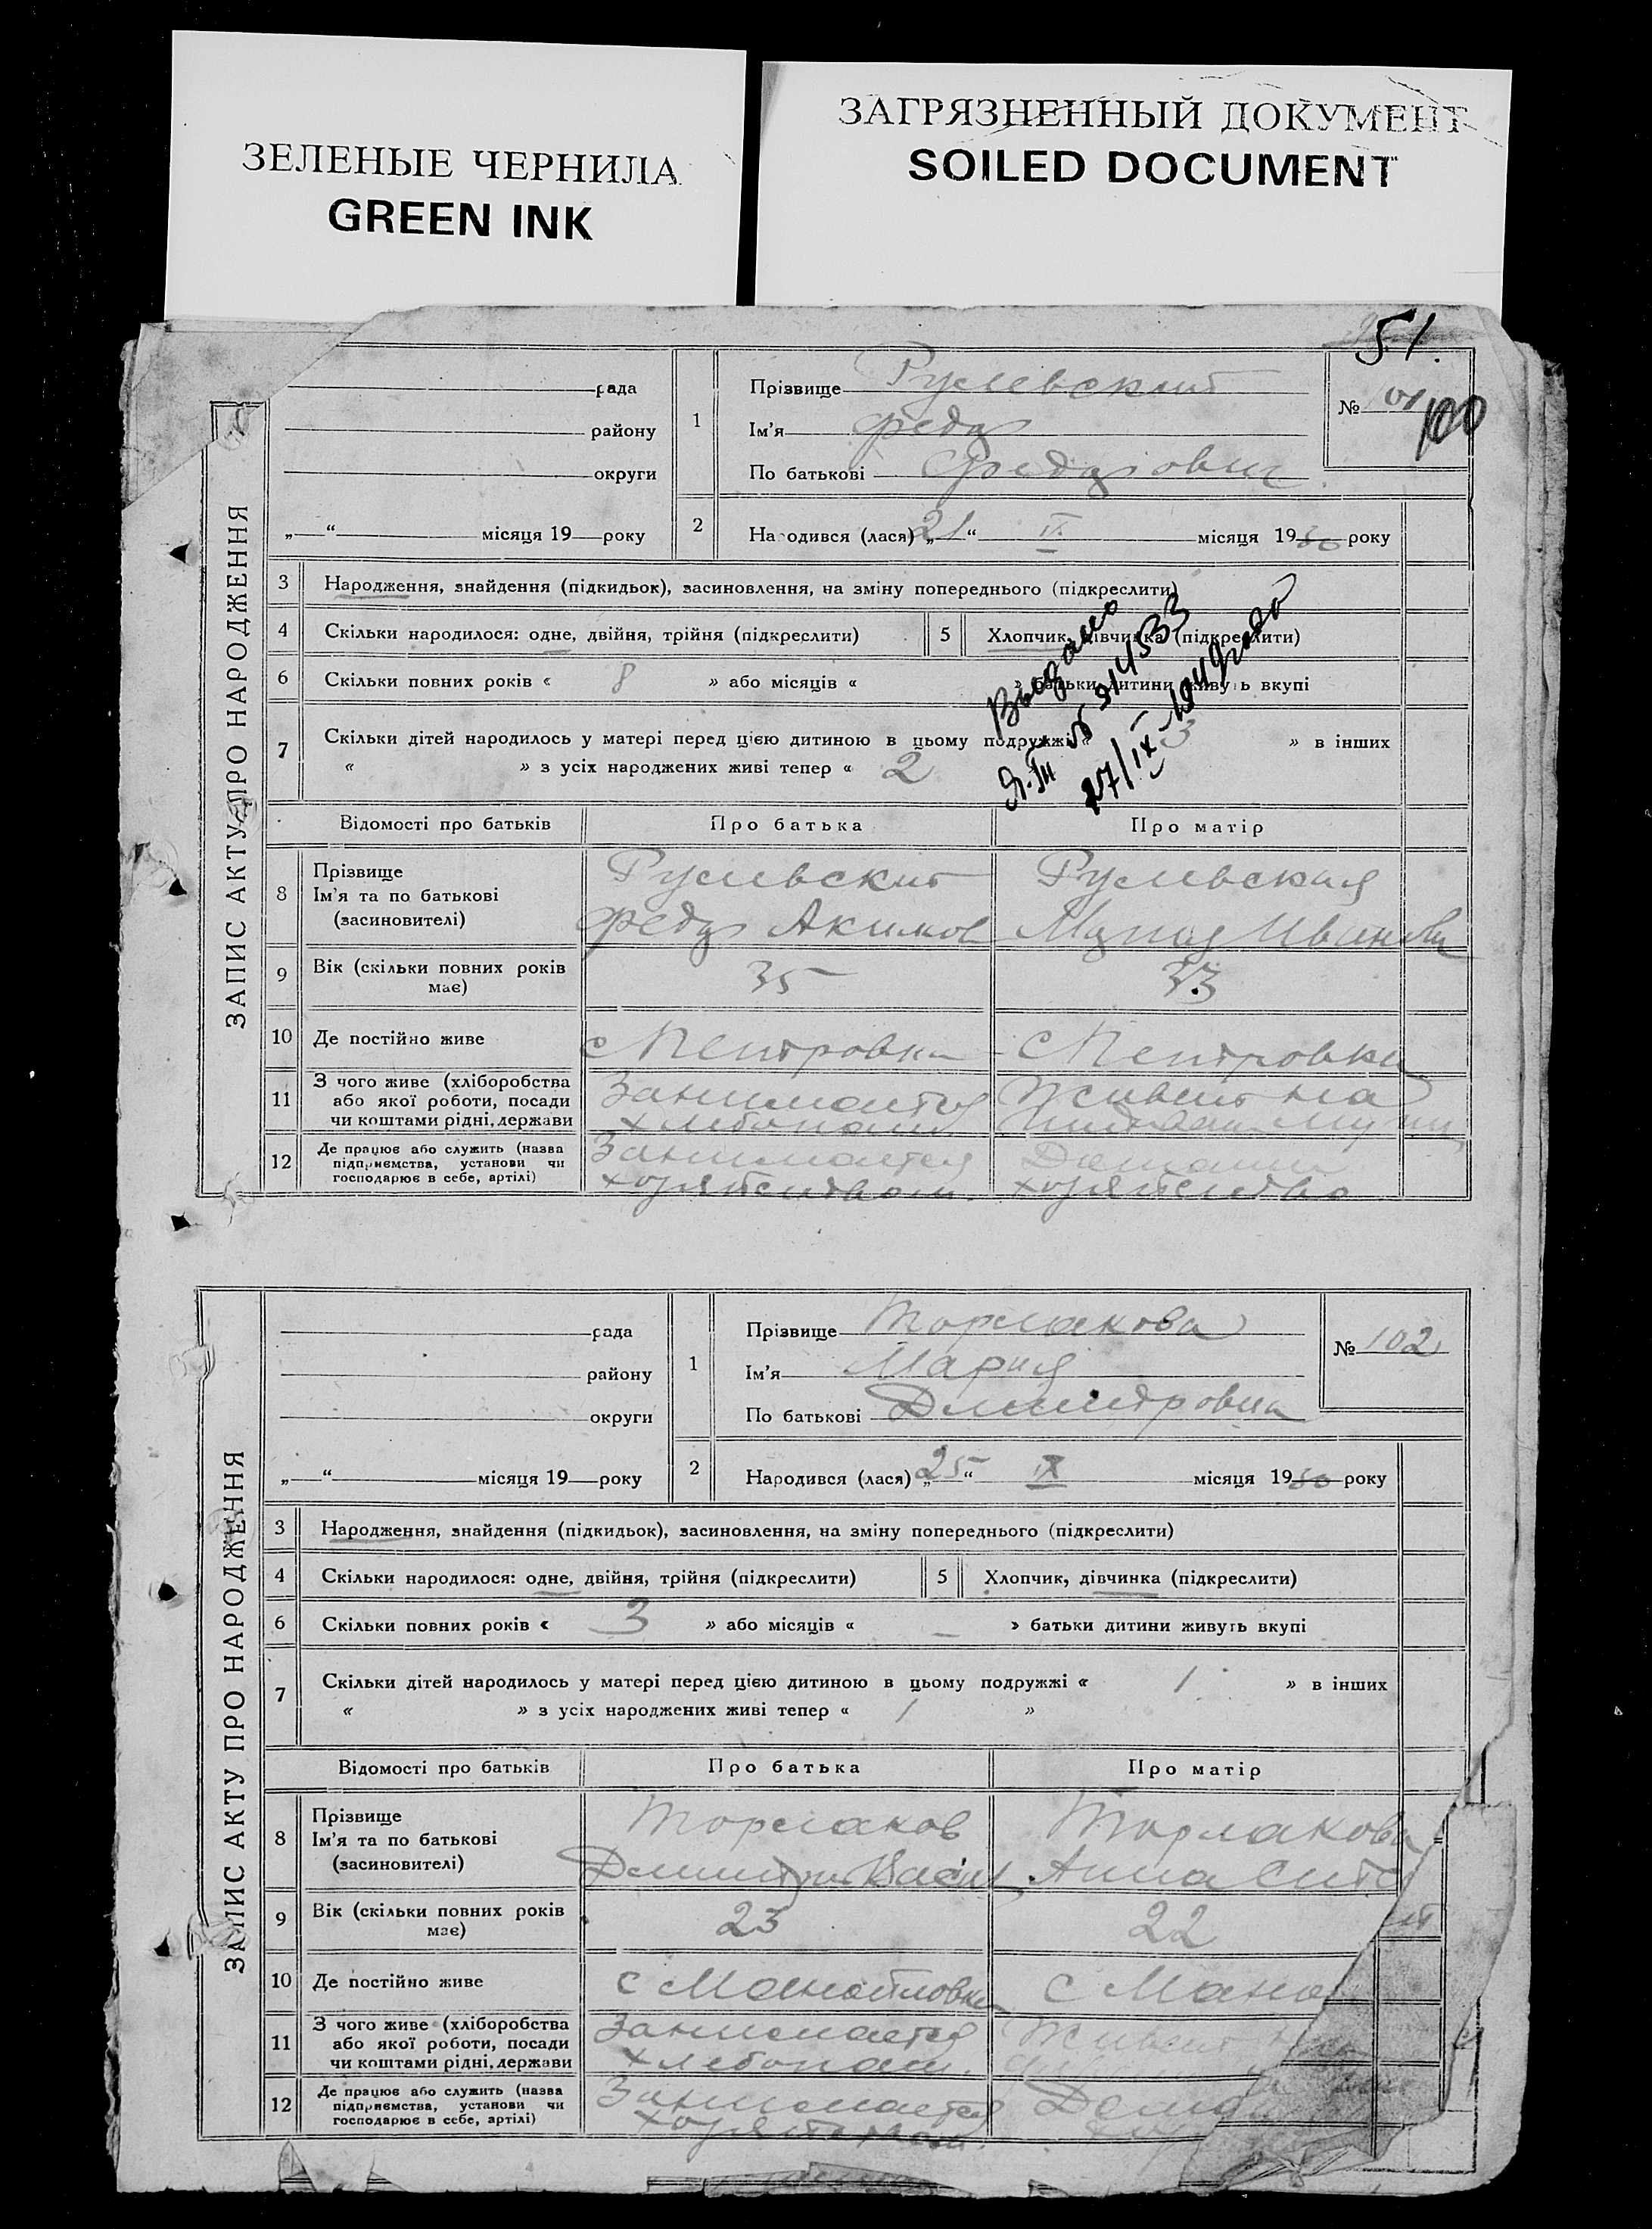 ЗЕЛЕНЫЕ ЧЕРНИЛА
GREEN INK
ЗАГРЯЗНЕННЫЙ ДОКУМЕНТ
SOILED DOCUMENT
51.
ЗАПИС АКТУ ПРО НАРОДЖЕННЯ
рада
району
округи
„ “ місяця 19 року
1
Прізвище
Ім'я Федор
По батькові Федорович
№ 101
100
2 Народився (лася) „21“ місяця 1930 року
3 Народження, знайдення (підкидьок), засиновлення, на зміну попереднього (підкреслити)
4 Скільки народилося: одне, двійня, трійня (підкреслити) 5 Хлопчик, дівчинка (підкреслити)
6 Скільки повних років « 8 » або місяців « » батьки дитини живуть вкупі
7 Скільки дітей народилось у матері перед цією дитиною в цьому подружжі « 3 » в інших
« » з усіх народжених живі тепер « 2
Выдано
№ 914533
27/IX-1949 года
Відомості про батьків Про батька Про матір
8 Прізвище
Ім'я та по батькові
(засиновителі)
Федор Акимов Мария Иванов
9 Вік (скільки повних років має) 35 33
10 Де постійно живе с Петровка с Петровка
11 З чого живе (хліборобства або якої роботи, посади чи коштами рідні, держави
Занимается Живет на
хлебопаш
12 Де працює або служить (назва підприємства, установи чи господарює в себе, артілі)
Занимается Домашн
хозяйством. хозяйство
ЗАПИС АКТУ ПРО НАРОДЖЕННЯ
рада
району
округи
„ “ місяця 19 року
1
Прізвище Торлакова
Ім'я Мария
По батькові Дмитровна
№ 102
2 Народився (лася) „25“ IX місяця 1930 року
3 Народження, знайдення (підкидьок), засиновлення, на зміну попереднього (підкреслити)
4 Скільки народилося: одне, двійня, трійня (підкреслити) 5 Хлопчик, дівчинка (підкреслити)
6 Скільки повних років « 3 » або місяців « — » батьки дитини живуть вкупі
7 Скільки дітей народилось у матері перед цією дитиною в цьому подружжі « 1 » в інших
« » з усіх народжених живі тепер « 1 »
Відомості про батьків Про батька Про матір
8 Прізвище
Ім'я та по батькові
(засиновителі)
Торлаков Торлакова
Дмитрий Васил Анна
9 Вік (скільки повних років має) 23 22
10 Де постійно живе с Манойловка с Мано
11 З чого живе (хліборобства або якої роботи, посади чи коштами рідні, держави
Занимается Живет
хлебопаш.
12 Де працює або служить (назва підприємства, установи чи господарює в себе, артілі)
Занимается Дома
хозяйством.